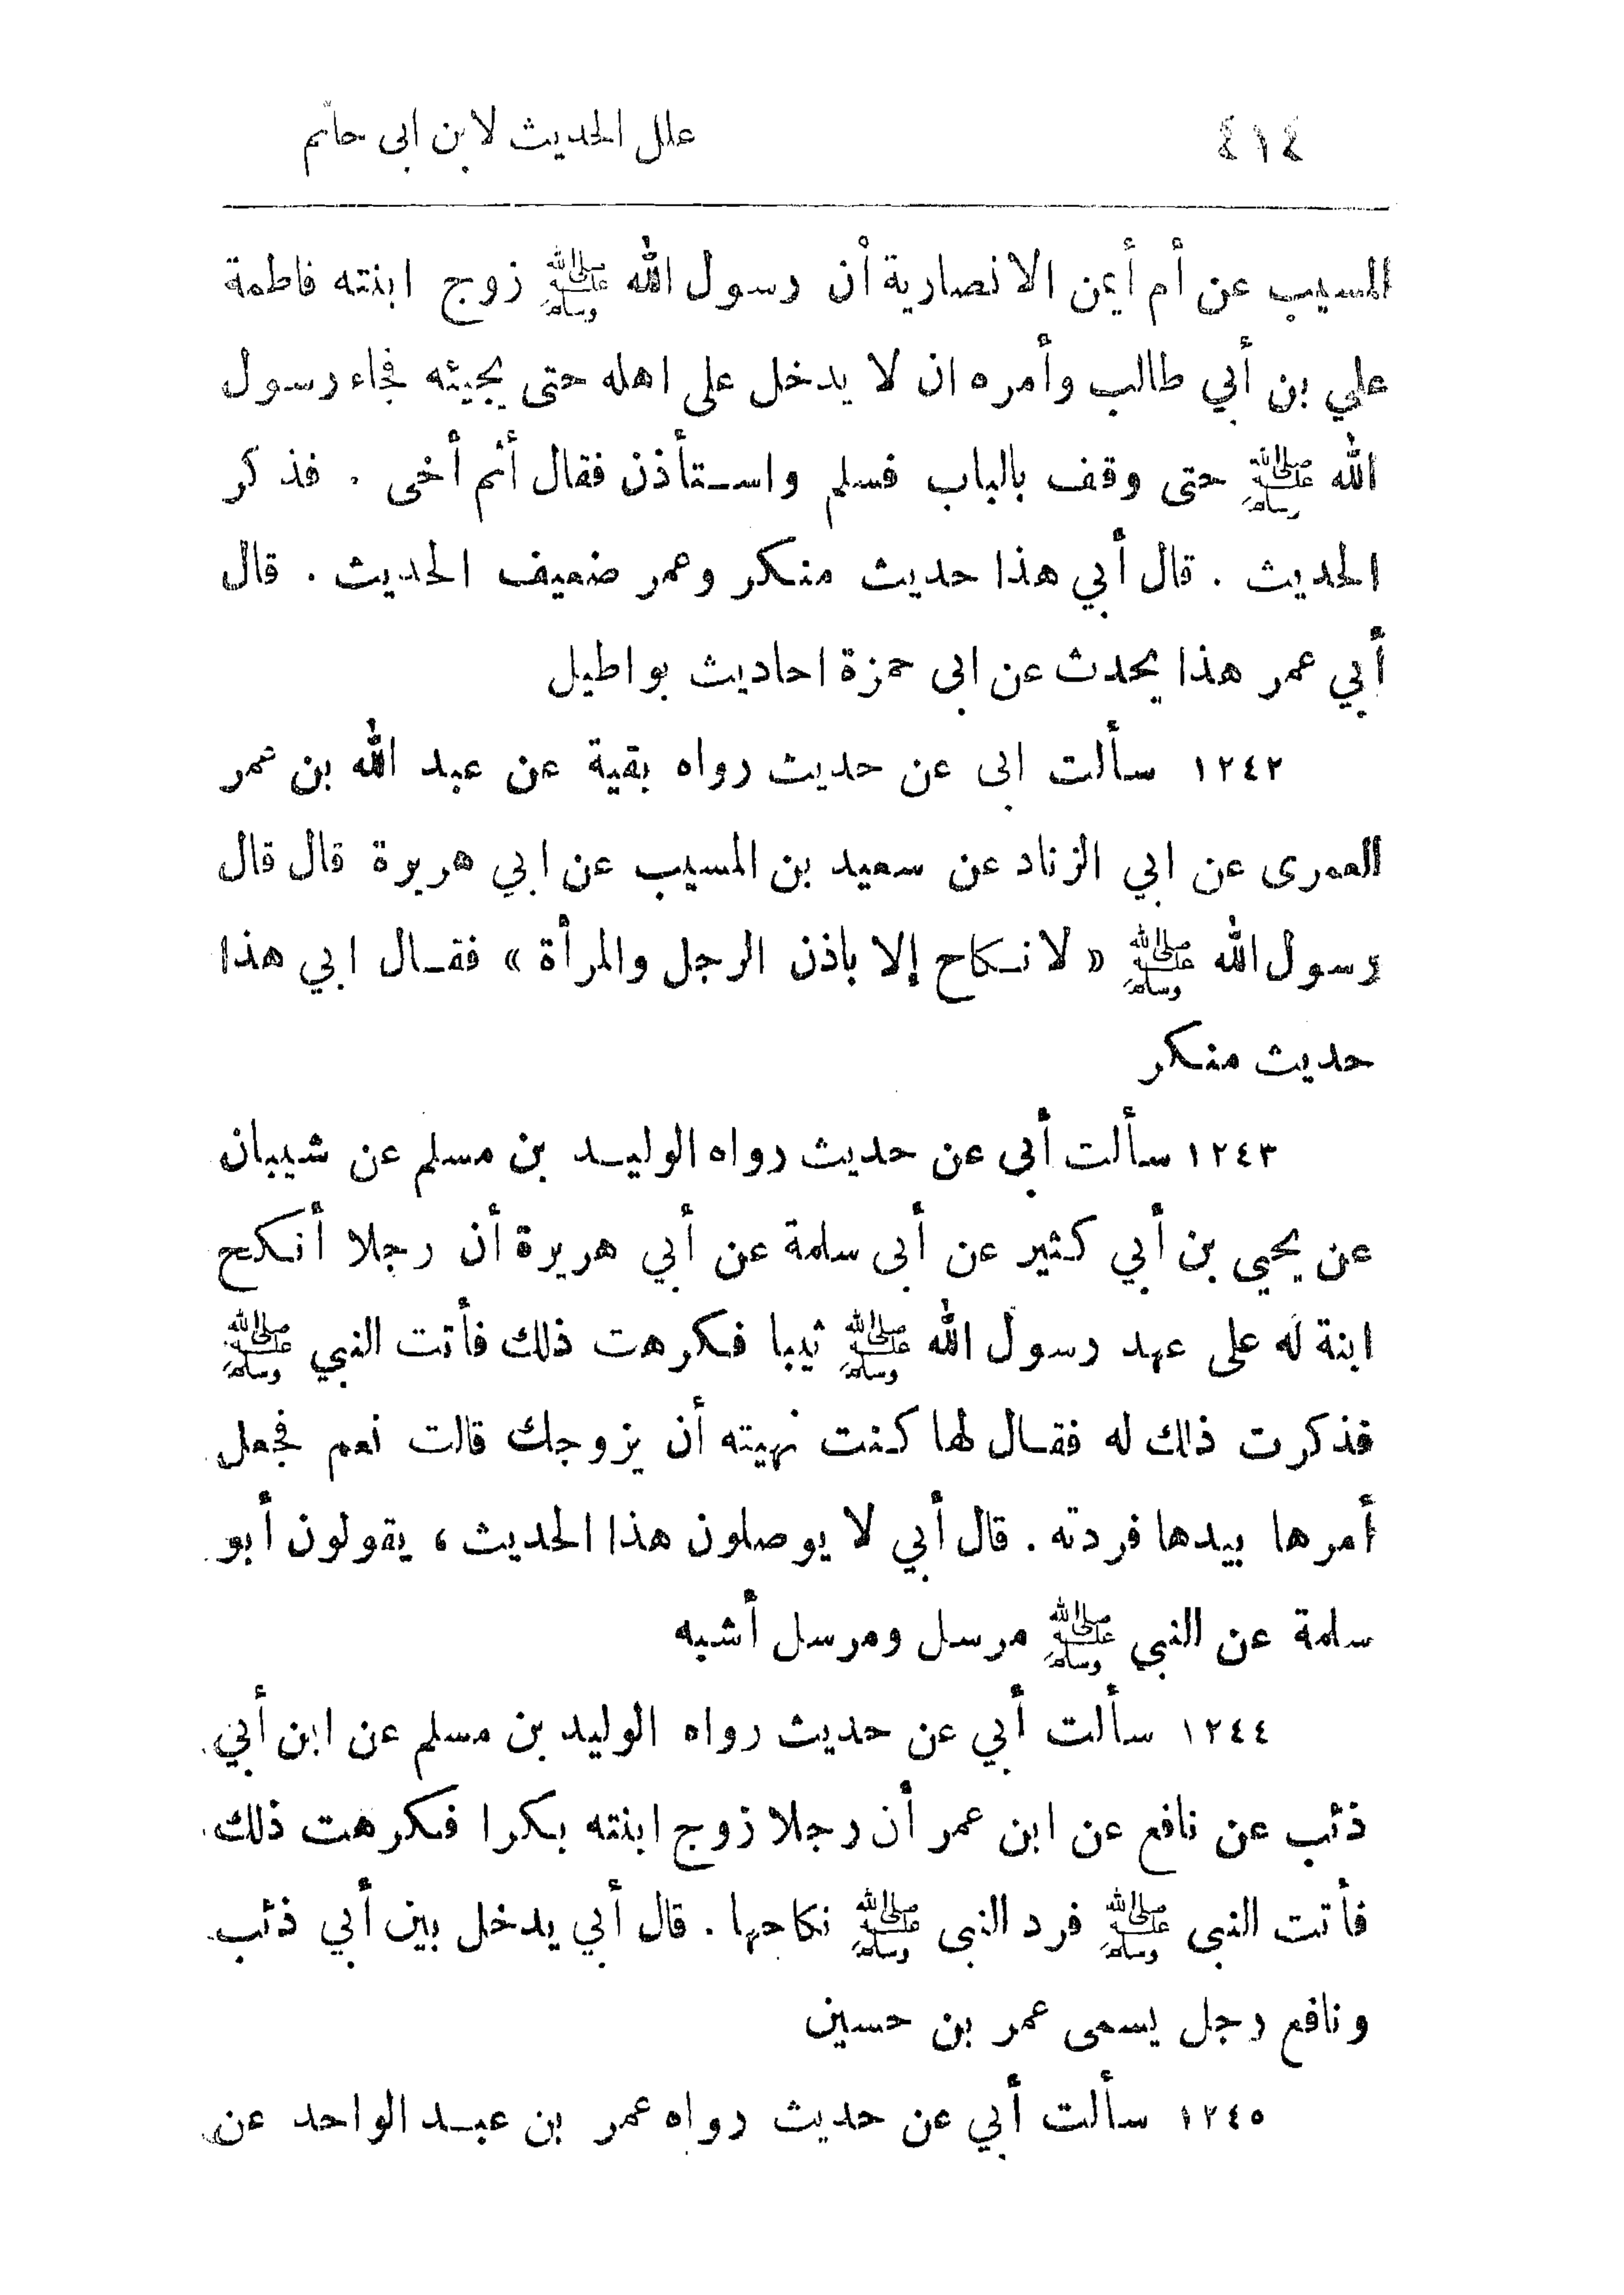 ٤١٤ علل الحديث لابن ابى حاتم
المسيب عن أم أيمن الانصارية أن رسول الله ﷺ زوج ابنته فاطمة
علي بن أبي طالب وأمره ان لا يدخل على اهله حتى يجيئه فجاء رسول
الله ﷺ حتى وقف بالباب فسلم واستأذن فقال أثم أخى . فذكر
الحديث . قال أبي هذا حديث منكر وعمر ضعيف الحديث . قال
أبي عمر هذا يحدث عن ابى حمزة احاديث بواطيل
١٢٤٢ سألت ابى عن حديث رواه بقية عن عبد الله بن عمر
العمرى عن ابي الزناد عن سعيد بن المسيب عن ابي هريرة قال قال
رسول الله ﷺ « لا نكاح إلا باذن الرجل والمرأة » فقال ابي هذا
حديث منكر
١٢٤٣ سألت أبى عن حديث رواه الوليد بن مسلم عن شيبان
عن يحيى بن أبي كثير عن أبى سلمة عن أبي هريرة أن رجلا أنكح
ابنة له على عهد رسول الله ﷺ ثيبا فكرهت ذلك فأتت النبي ﷺ
فذكرت ذلك له فقال لها كنت نهيته أن يزوجك قالت نعم فجعل
أمرها بيدها فردته . قال أبي لا يوصلون هذا الحديث ، يقولون أبو
سلمة عن النبى ﷺ مرسل ومرسل أشبه
١٢٤٤ سألت أبي عن حديث رواه الوليد بن مسلم عن ابن أبي
ذئب عن نافع عن ابن عمر أن رجلا زوج ابنته بكرا فكرهت ذلك
فأتت النبى ﷺ فرد النبى ﷺ نكاحها . قال أبي يدخل بين أبي ذئب
ونافع رجل يسمى عمر بن حسين
١٢٤٥ سألت أبي عن حديث رواه عمر بن عبد الواحد عن